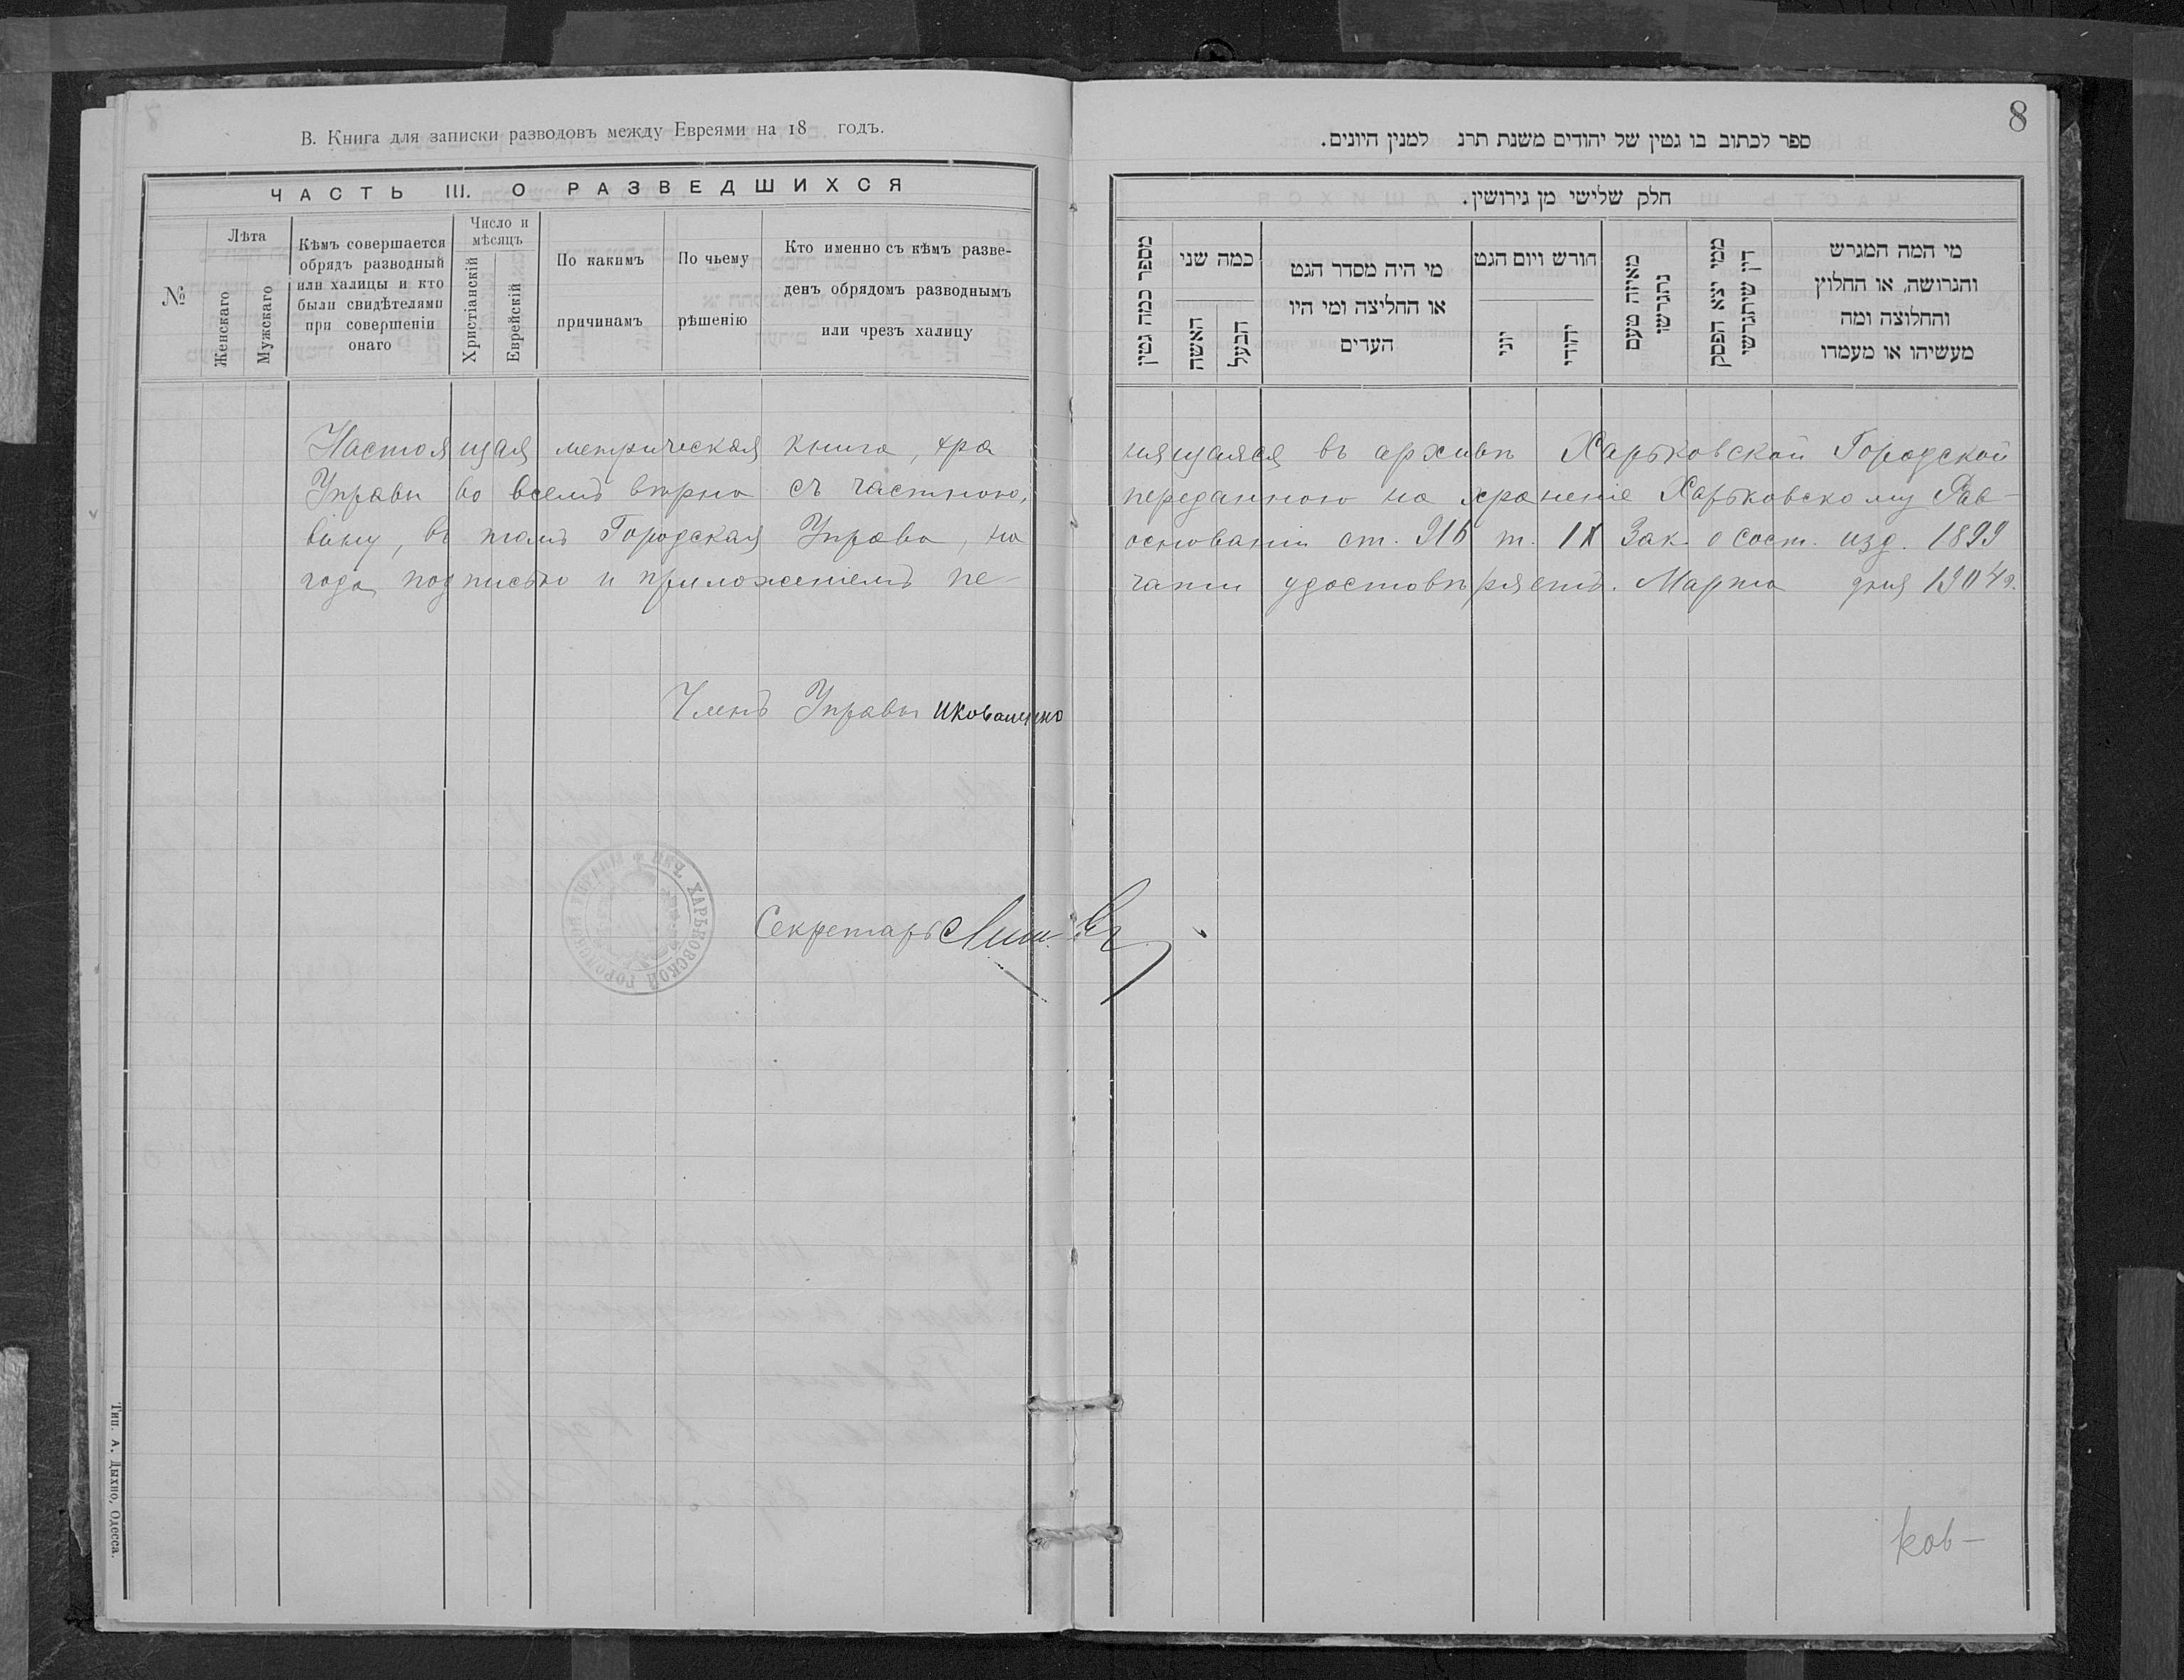 В. Книга для записки разводовъ между Евреями на 18 годъ.
ЧАСТЬ III. О РАЗВЕДШИХСЯ
№
Лѣта
Женскаго
Мужскаго
Кѣмъ совершается
обрядъ разводный
или халицы и кто
были свидѣтелями
при совершеніи
онаго
Число и
мѣсяцъ
Христіанскій
Еврейскій
По какимъ
причинамъ
По чьему
рѣшенію
Кто именно съ кѣмъ разве-
денъ обрядомъ разводнымъ
или чрезъ халицу
8
ספר לכתוב בו גטין של יהודים משנת תרנ למנין היונים.
חלק שלישי מן גירושין.
מספר כמה גטין
כמה שני
האשה
הבעל
מי היה מסדר הגט
או החליצה ומי היו
העדים
חורש ויום הגט
יוני
יהודי
מאיזה טעם
נתגרשו
ממי יצא הפסק
דין שיתגרשו
מי המה המגרש
והגרושה, או החלוץ
והחלוצה ומה
מעשיהו או מעמרו
Настоящая метрическая книга, хра
нящаяся въ архивѣ Харьковской Городской
Управы во всемъ вѣрна съ частною,
переданною на храненіе Харьковскому Рав-
вину, въ томъ Городская Управа, на
основаніи ст. 916 т. IX Зак. о сост. изд. 1899
года, подписью и приложеніемъ пе-
чати удостовѣряетъ. Марта дня 1904 г.
Членъ Управы
Секретарь
ПЕЧ. ХАРЬКОВСКОЙ ГОРОДСКОЙ УПРАВЫ
Тип. А. Дыхно, Одесса.
ков-